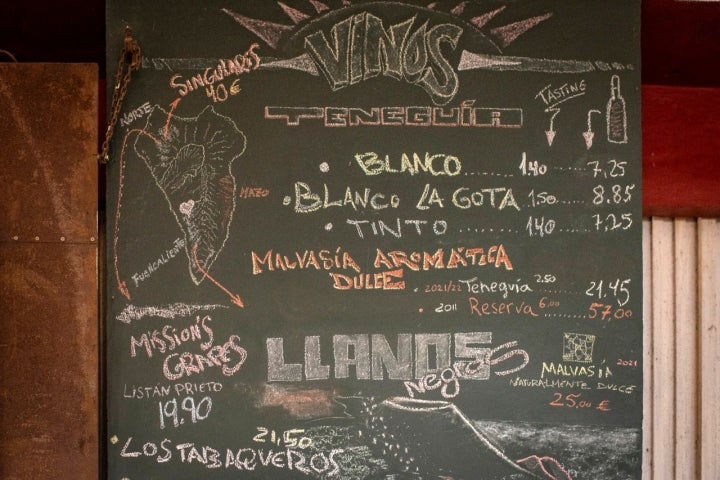 VINOS
TENEGUÍA
TASTING
BLANCO 1.40 7.25
BLANCO LA GOTA 1.50 8.85
TINTO 1.40 7.25
MALVASÍA AROMÁTICA
DULCE
2021/22 Teneguía 2.50 21.45
2011 Reserva 6.00 57.00
SINGULARES
40 €
NORTE
MAZO
FUENCALIENTE
MISSION'S
GRAPES
LISTÁN PRIETO
19.90
LLANOS
Negros
MALVASÍA 2021
NATURALMENTE DULCE
25,00 €
21,50
LOS TABAQUEROS